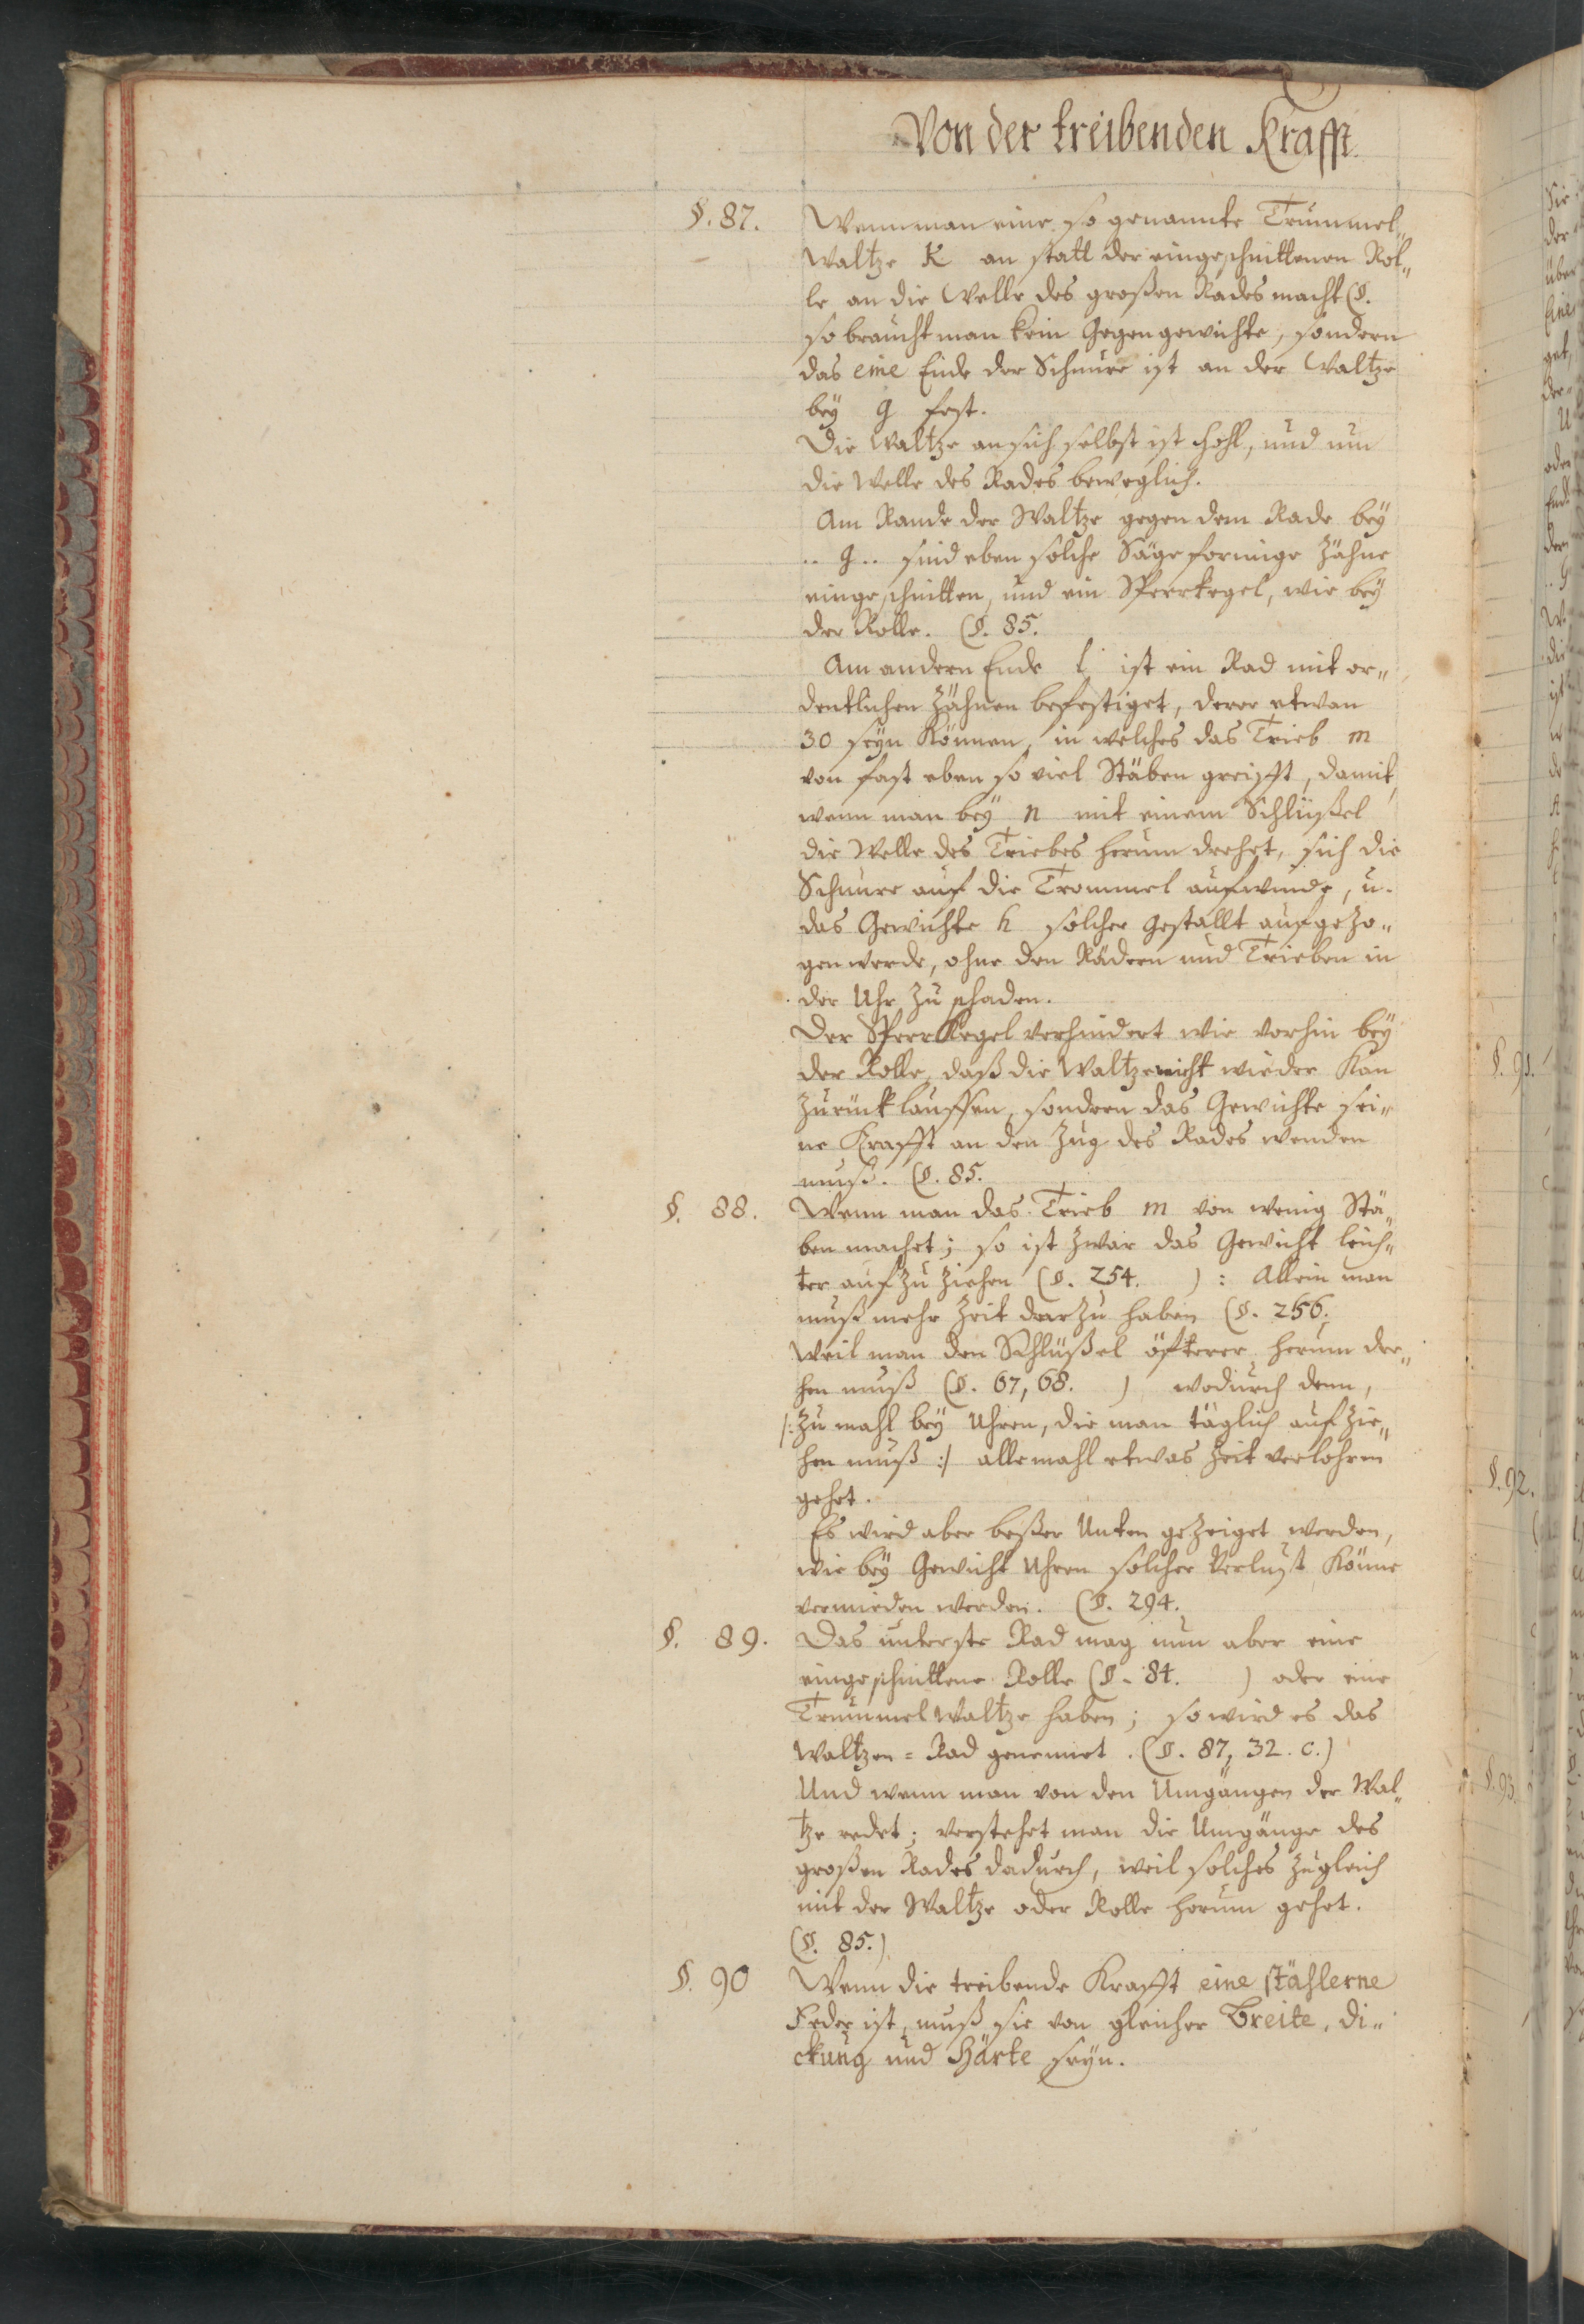 Von der treibenden Krafft.
§. 87. Wenn man eine so genannte Trummel„
Waltze K an statt der eingeschnittenen Rol„
le an die Welle des großen Rades macht (§.
so braucht man kein Gegengewichte, sondern
das eine Ende der Schnure ist an der Waltze
bey g fest.
Die Waltze an sich selbst ist hohl, und um
die Welle des Rades beweglich.
Am Rande der Waltze gegen dem Rade bey
.. g.. sind eben solche Sägeformige Zähne
eingeschnitten, und ein Sperrkegel, wie bey
der Rolle. (§. 85.
Am andern Ende l ist ein Rad mit or„
dentlichen Zähnen befestiget, derer etwan
30 seyn Können, in welches das Trieb m
von fast eben so viel Stäben greifft, damit,
wenn man bey n mit einem Schlüßel
die Welle des Triebes herum drehet, sich die
Schnure auf die Trommel aufwinde, u.
das Gewichte h solcher gestallt aufgezo„
gen werde, ohne den Rädern und Trieben in
der Uhr zu schaden.
Der Sperr Kegel verhindert wie vorhin bey
der Rolle, daß die Waltze nicht wieder Kan
zurück lauffen, sondern das Gewichte sei„
ne Krafft an den Zug des Rades wenden
muß. (§. 85.
§. 88. Wenn man das Trieb m von wenig Stä„
ben machet; so ist zwar das Gewicht leich„
ter auf zu ziehen (§. 254. ) : Allein man
muß mehr Zeit darzu haben (§. 256.
weil man den Schlüßel öfterer herum dre„
hen muß (§. 67, 68. ) wodurch denn,
/: Zu mahl bey Uhren, die man täglich auf zie„
hen muß :/ alle mahl etwas Zeit verlohren
gehet.
Es wird aber beßer Unten gezeiget werden,
wie bey Gewicht Uhren solcher Verlust Könne
vermieden werden. (§. 294.
§. 89. Das unterste Rad mag nun aber eine
eingeschnittene Rolle (§. 84. ) oder eine
Trummel Waltze haben; so wird es das
Waltzen = Rad genennet. (§. 87, 32. c.)
Und wenn man von den Umgängen der Wal„
tze redet; verstehet man die Umgänge des
großen Rades dadurch, weil solches zugleich
mit der Waltze oder Rolle herum gehet.
(§. 85.)
§. 90 Wenn die treibende Krafft eine stählerne
Feder ist, muß sie von gleicher Breite, Di„
ckung und Härte seyn.
§. 91.
§. 92.
§. 93.